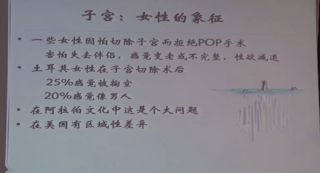 子宫：女性的象征
• 一些女性因怕切除子宫而拒绝POP手术
害怕失去伴侣，感觉变老或不完整，性欲减退
• 土耳其女性在子宫切除术后
25%感觉被掏空
20%感觉像男人
• 在阿拉伯文化中这是个大问题
• 在美国有区域性差异